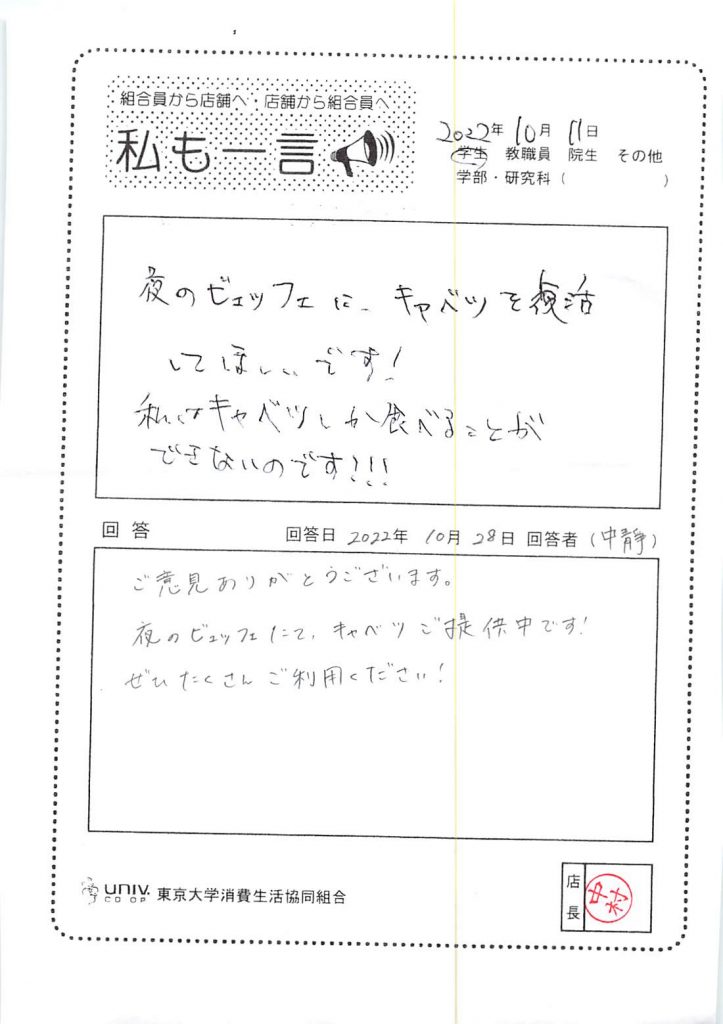 組合員から店舗へ・店舗から組合員へ
私も一言
2022年 10月 11日
学生 教職員 院生 その他
学部・研究科 ( )
夜のビュッフェに、キャベツを復活
してほしいです!
私はキャベツしか食べることが
できないのです!!!
回答 回答日 2022年 10月 28日 回答者 (中靜)
ご意見ありがとうございます。
夜のビュッフェにて、キャベツご提供中です!
ぜひたくさんご利用ください!
UNIV. CO-OP 東京大学消費生活協同組合
店長 中村